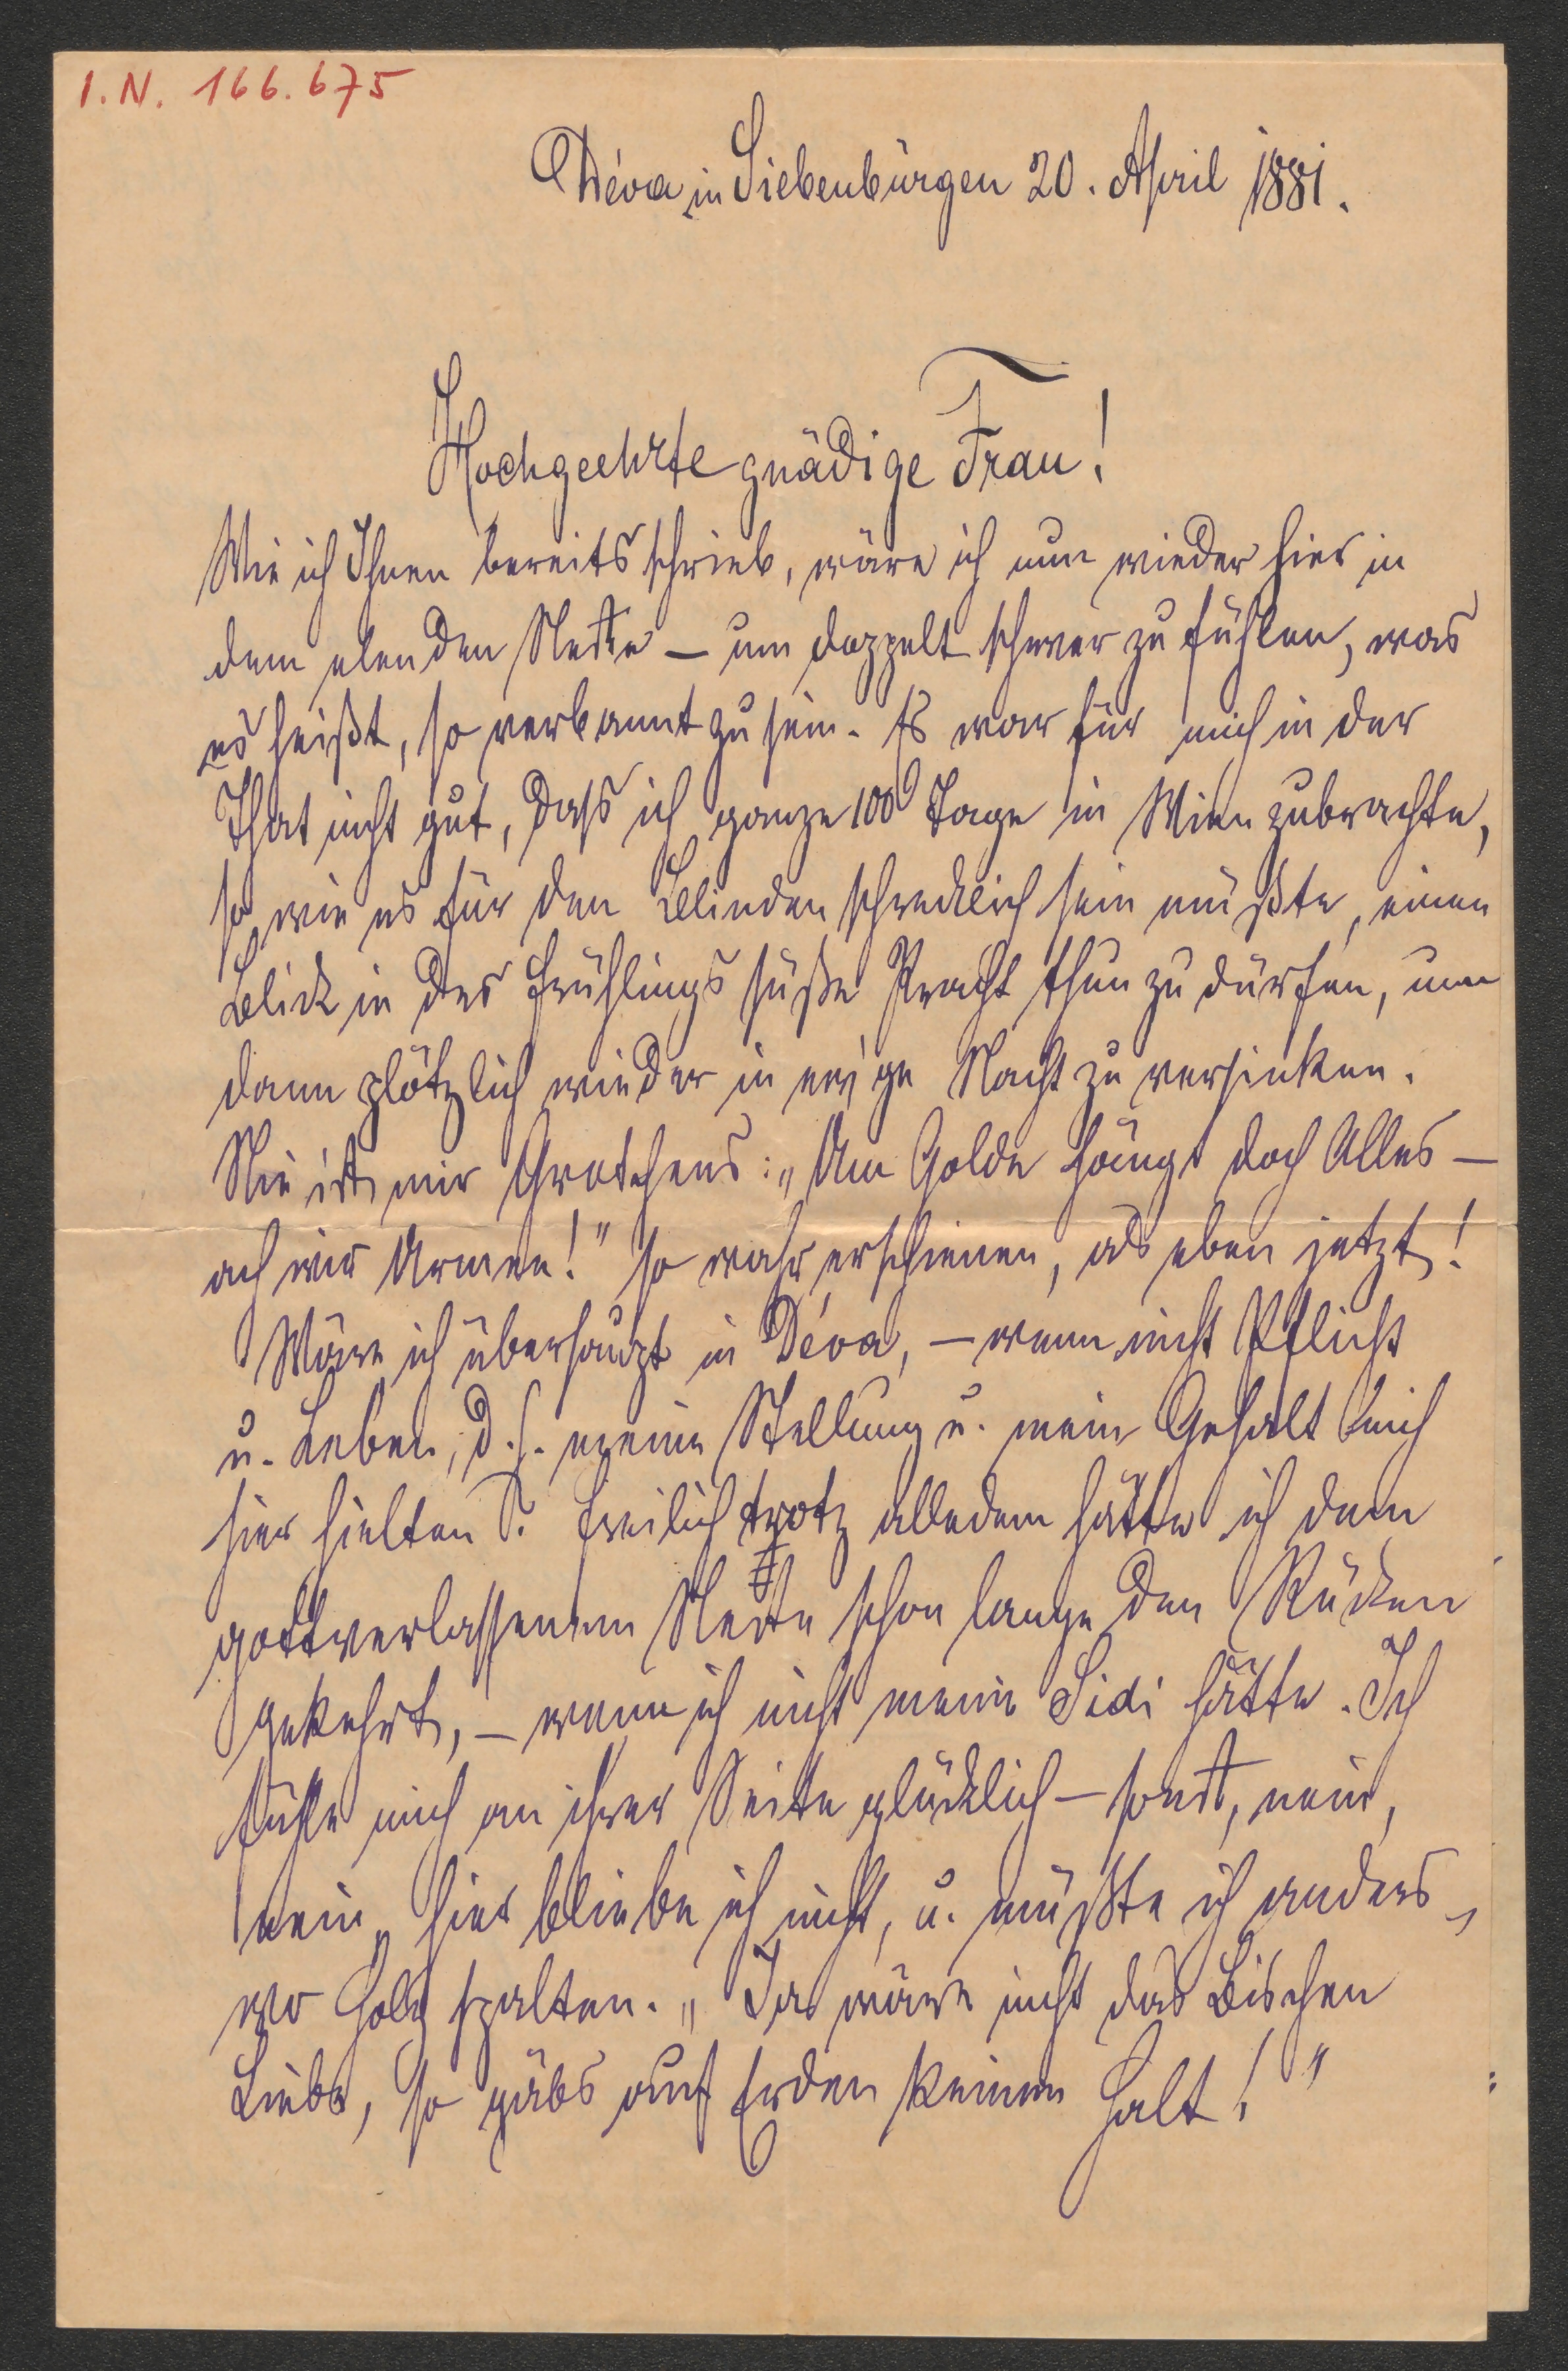 I.N. 166.675
Déva in Siebenbürgen 20. April 1881.
Hochgeehrte gnädige Frau!
Wie ich Ihnen bereits schrieb, wäre ich nun wieder hier in
dem elenden Neste – um doppelt schwer zu fühlen, was
es heißt, so verbannt zu sein. Es war für mich in der
That nicht gut, dass ich ganze 100 Tage in Wien zubrachte,
so wie es für den Blinden schrecklich sein müßte, einen
Blick in des Frühlings süße Pracht thun zu dürfen, um
dann plötzlich wieder in ewige Nacht zu versinken.
Nie ist mir Gretchens: „Am Golde hängt doch Alles –
ach wir Armen!" so wahr erschienen, als eben jetzt!
Wäre ich überhaupt in Déva, – wenn nicht Pflicht
u. Leben, d. h. meine Stellung u. mein Gehalt mich
hier hielten? Freilich trotz alledem hätte ich dem
gottverlassenen Neste schon lange den Rücken
gekehrt, – wenn ich nicht meine Sidi hätte. Ich
fühle mich an ihrer Seite glücklich – sonst, nein,
nein, hier bliebe ich nicht, u. müßte ich anders-
wo Holz spalten. „Ja wäre nicht das Bischen
Liebe, so gäbs auf Erden keinen Halt!"